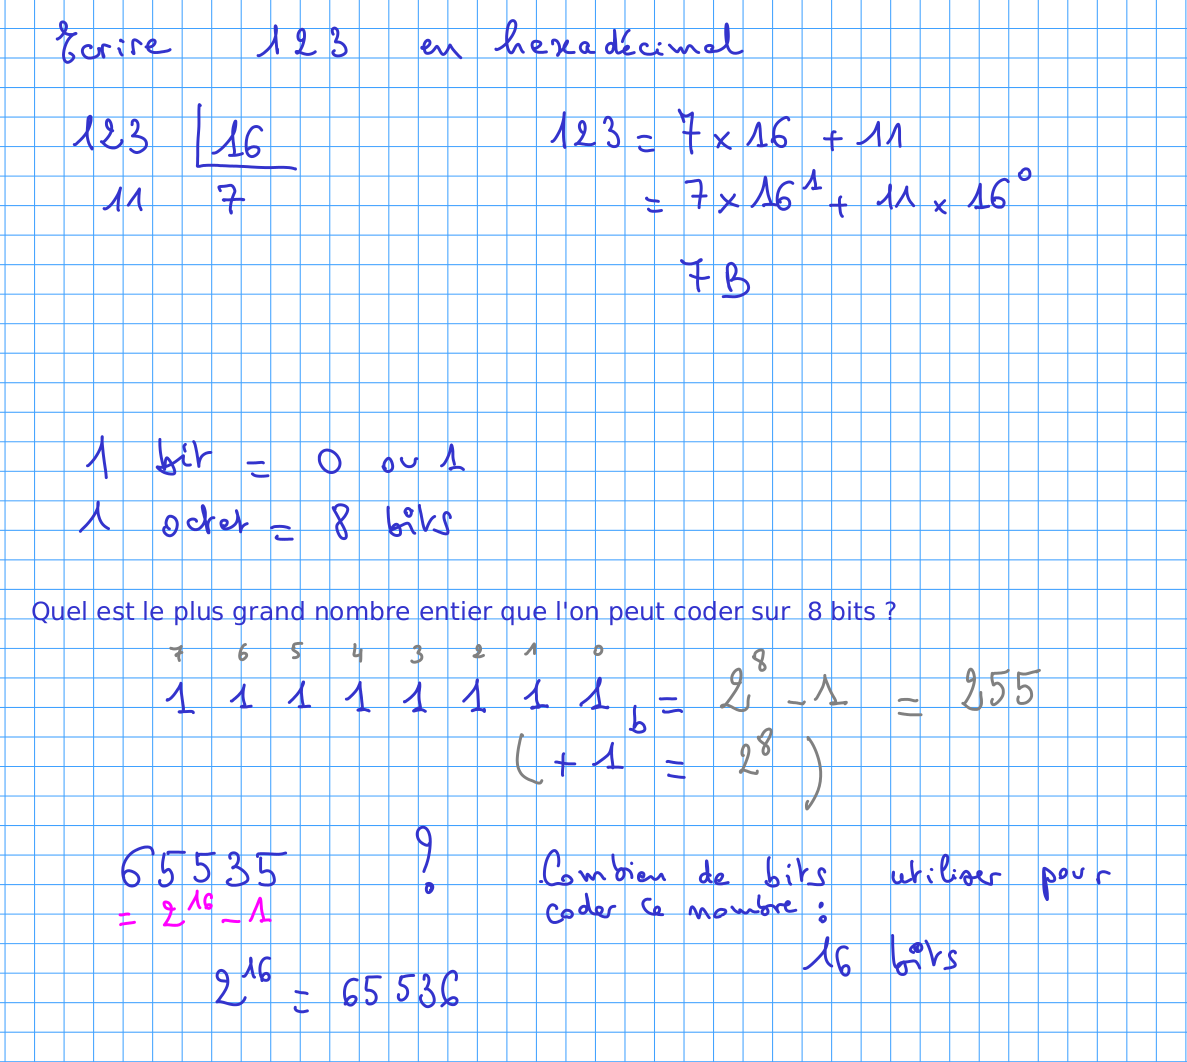 Ecrire 123 en hexadécimal
123 16 123 = 7 × 16 + 11
11 7 = 7 × 16¹ + 11 × 16⁰
7B
1 bit = 0 ou 1
1 octet = 8 bits
Quel est le plus grand nombre entier que l'on peut coder sur 8 bits ?
7 6 5 4 3 2 1 0
1 1 1 1 1 1 1 1 b = 2⁸ - 1 = 255
( + 1 = 2⁸ )
65535 ? Combien de bits utiliser pour
= 2¹⁶ - 1 coder ce nombre :
16 bits
2¹⁶ = 65536